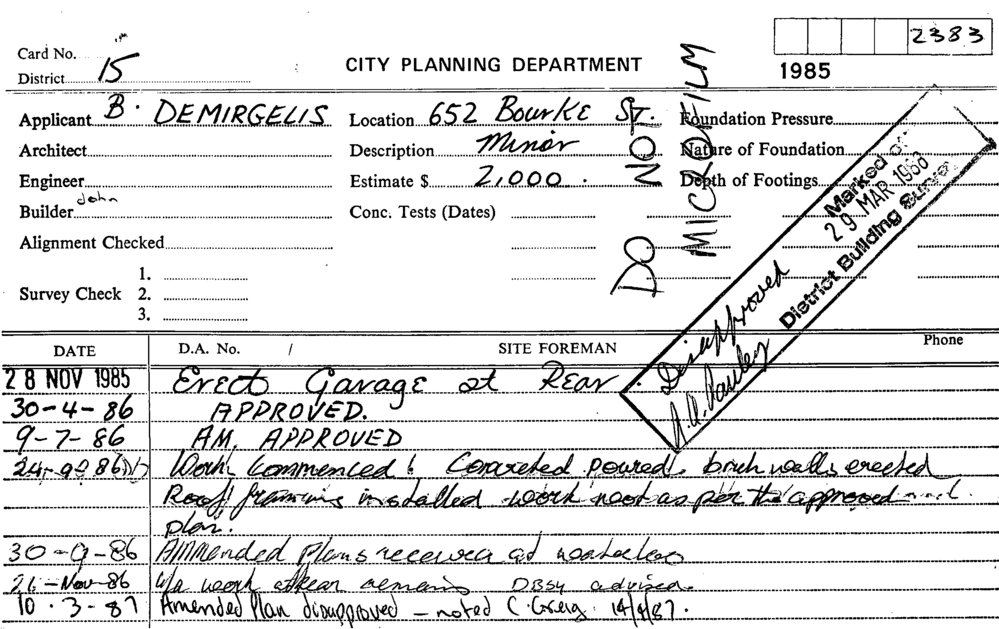 2383
Card No.
District 15
CITY PLANNING DEPARTMENT
1985
Applicant B. DEMIRGELIS
Location 652 BourKE ST.
Foundation Pressure
Architect
Description Minor
Nature of Foundation
Engineer
Estimate $ 2,000.
Depth of Footings
Builder John
Conc. Tests (Dates)
Alignment Checked
Survey Check
1.
2.
3.
DO NOT
MICROFILM
Marked off
29 MAR 1988
District Building Surveyor
Disapproved
DATE
D.A. No. /
SITE FOREMAN
Phone
28 NOV 1985 Erect Garage at Rear.
30-4-86 APPROVED.
9-7-86 AM. APPROVED
24-9-86 Work Commenced. Concreted poured. brick walls erected
Roof framing installed work not as per the approved
plan.
30-9-86 Ammended Plans at
26-Nov-86 work rear remains DBSy advised
10.3-87 Amended Plan disapproved - noted C. Greig. 14/9/87.